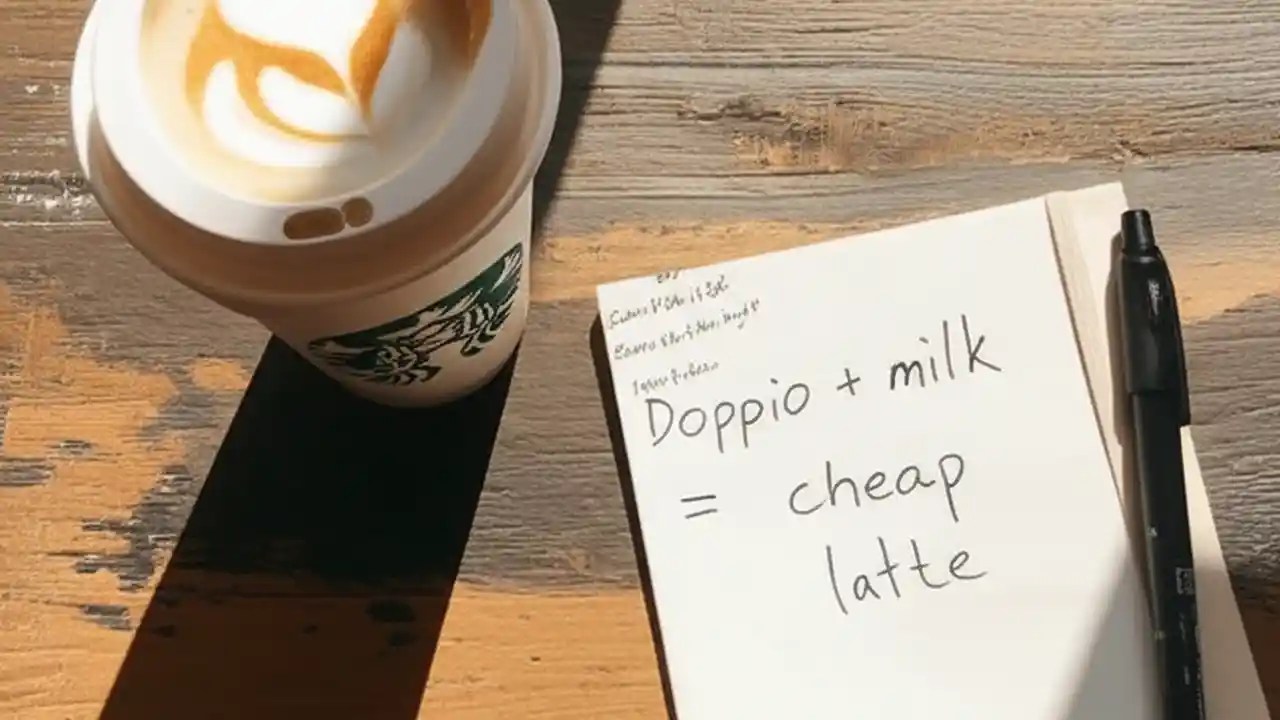 Doppio + milk
= cheap
latte